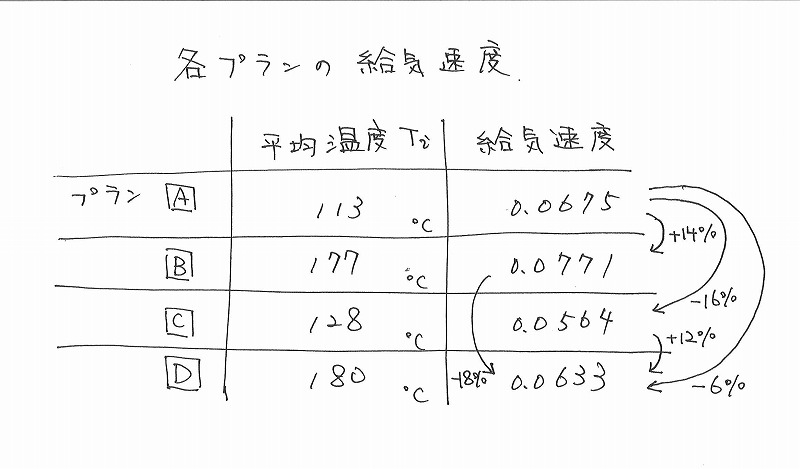 各プランの給気速度.
平均温度 Ti 給気速度
プラン A 113 °C 0.0675
+14%
B 177 °C 0.0771
-16%
C 128 °C 0.0564
+12%
D 180 °C -18% 0.0633 -6%